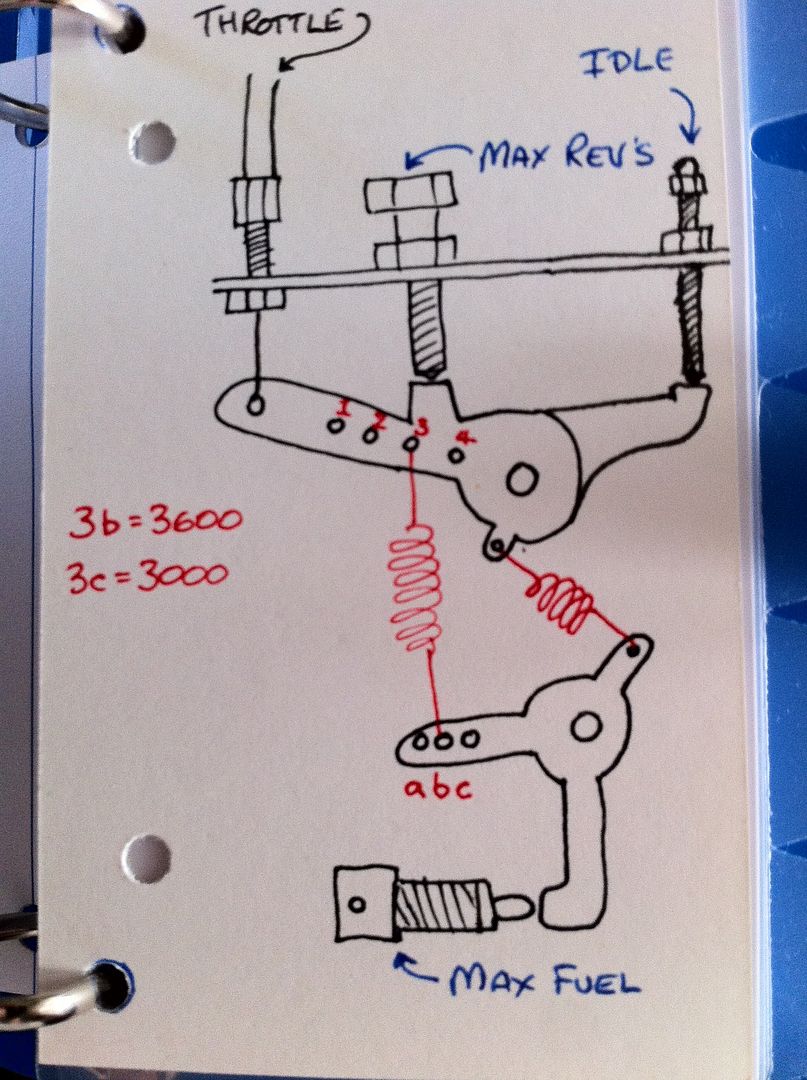 THROTTLE
IDLE
MAX REV'S
1 2 3 4
3b=3600
3c=3000
a b c
MAX FUEL